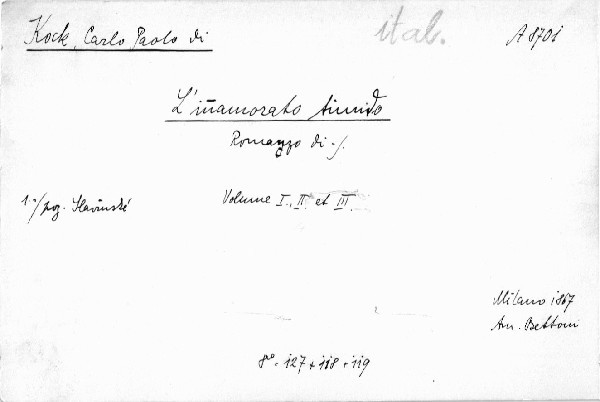 Kock, Carlo Paolo di
ital.
A 8701
L'iñamorato timido
Romanzo di -/.
1./poz. Slavinské
Volume I., II. et III.
Milano 1867
An. Bettoni
8º. 127 + 118 + 119